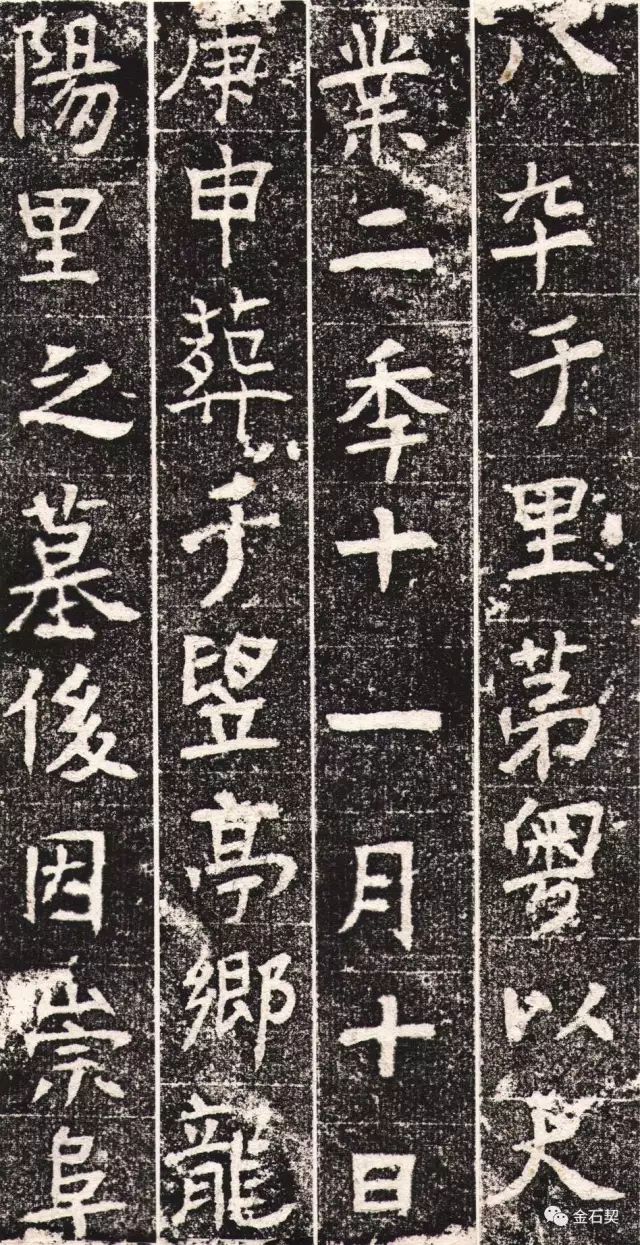 八卆于里苐粤以大
業二秊十一月十日
庚申葬于竪亭鄉龍
陽里之墓後因崇阜
金石契